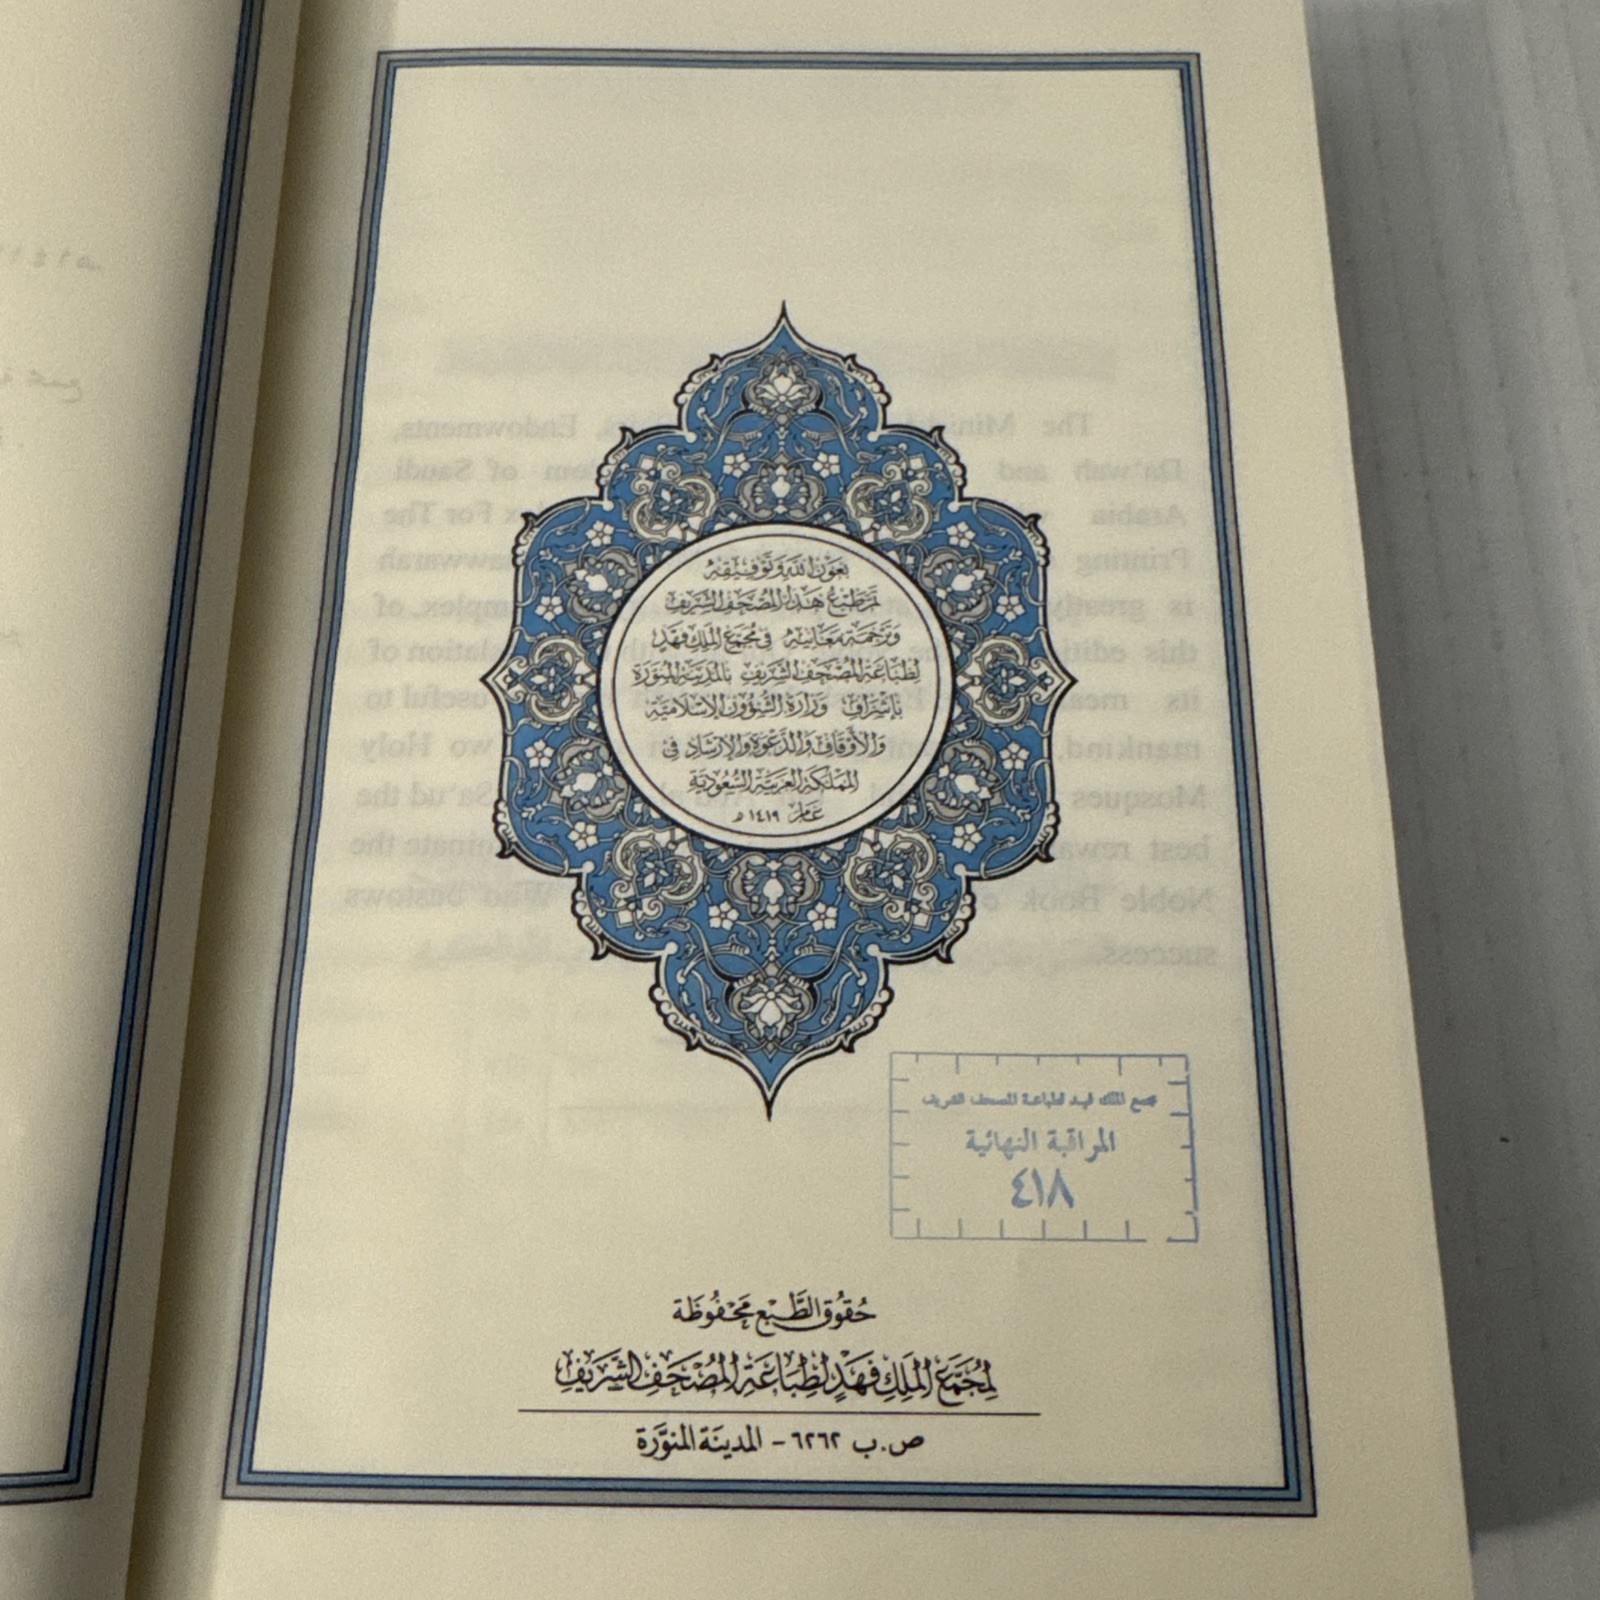 بِعَوْنِ اللَّهِ وَتَوْفِيقِهِ
تَمَّ طَبْعُ هَذَا المُصْحَفِ الشَّرِيفِ
وَتَرْجَمَة مَعَانِيهِ فِي مُجَمَّع المَلِك فَهَد
لِطِبَاعَةِ المُصْحَفِ الشَّرِيفِ بِالمَدِينَةِ المُنَوَّرَة
بِإِشْرَاف وَزَارَةِ الشُّؤُونِ الإِسْلَامِيَّة
وَالأَوْقَافِ وَالدَّعْوَةِ وَالإِرْشَادِ فِي
المَمْلَكَةِ العَرَبِيَّةِ السُّعُودِيَّة
عَام ١٤١٩ هـ
مجمع الملك فهد لطباعة المصحف الشريف
المراقبة النهائية
٤١٨
حُقُوق الطَّبْع مَحْفُوظَة
لِمُجَمَّعِ المَلِكِ فَهَدٍ لِطِبَاعَةِ المُصْحَفِ الشَّرِيفِ
ص.ب ٦٢٦٢ - المدينَة المنوَّرَة